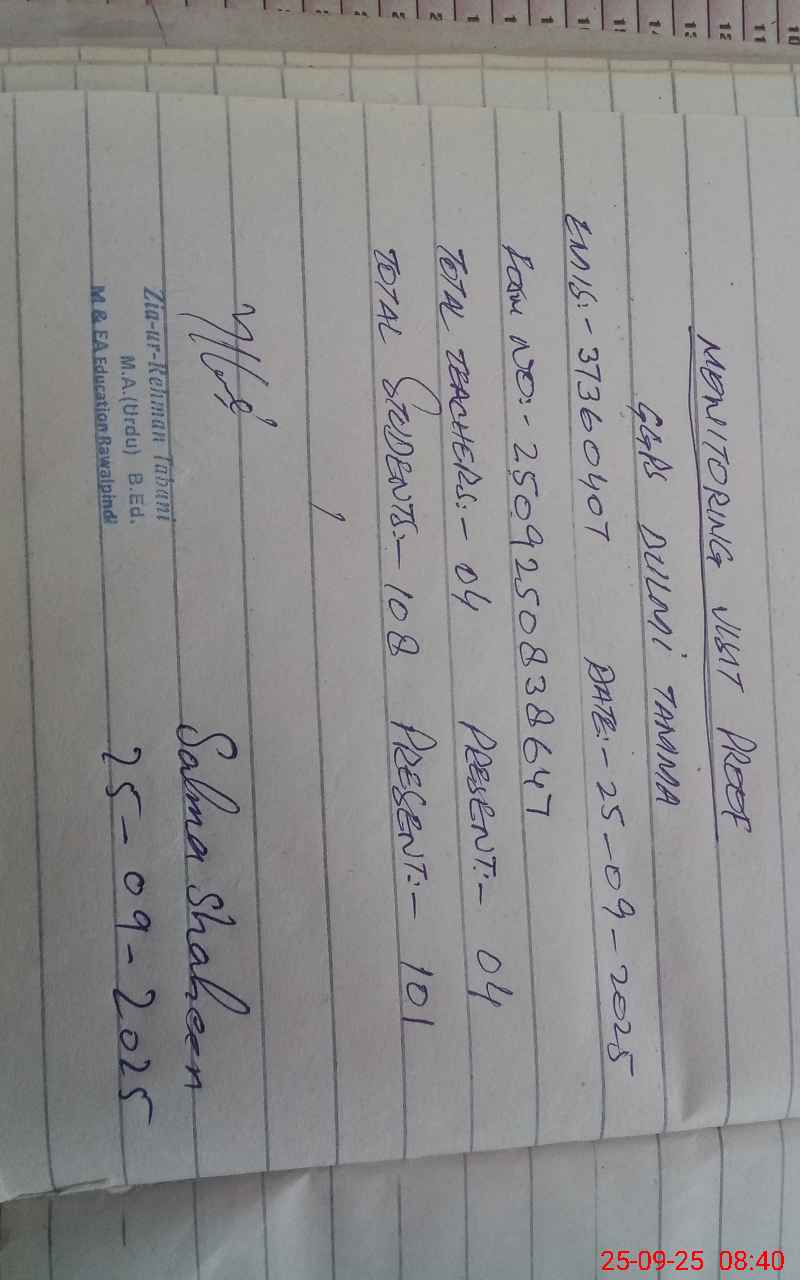 MONITORING VISIT PROOF
GGPS DULMI TAMMA
EMIS:- 37360407 DATE:- 25-09-2025
FORM NO:- 2509250838647
TOTAL TEACHERS:- 04 PRESENT:- 04
TOTAL STUDENTS:- 108 PRESENT:- 101
Salma Shaheen
25-09-2025
Zia-ur-Rehman Tabani
M.A.(Urdu) B.Ed.
M & EA Education Rawalpindi
25-09-25 08:40